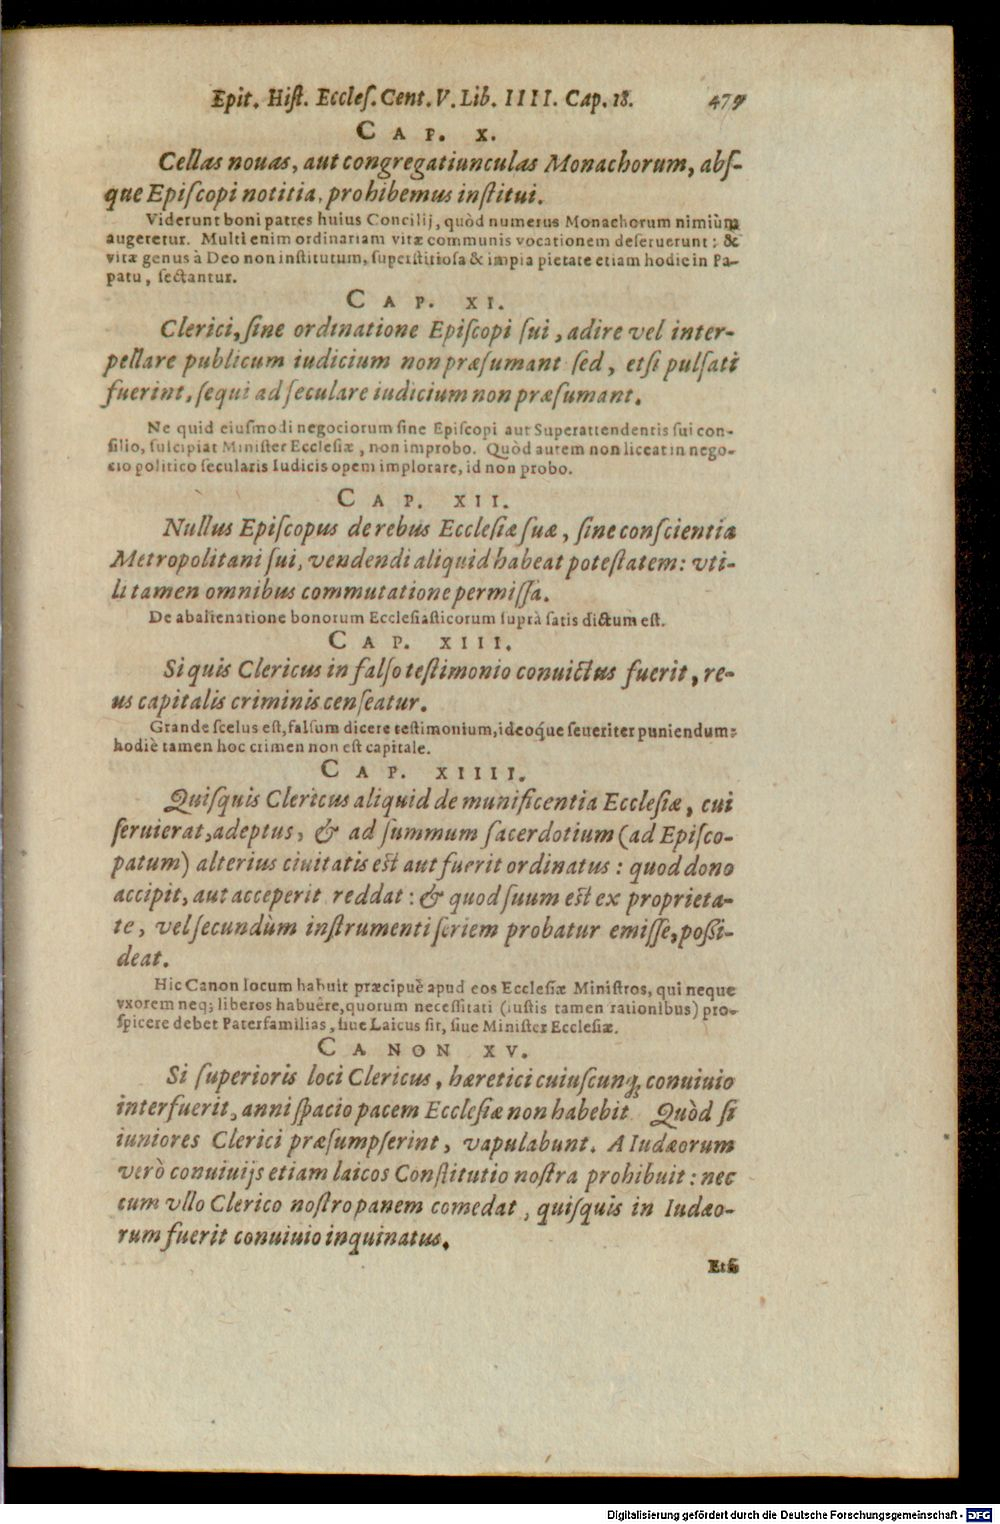 Epit. Hiſt. Eccleſ. Cent. V. Lib. IIII. Cap. 18.
CAP. X.
Cellas nouas, aut congregatiunculas Monachorum, abſ-
que Epiſcopi notitia, prohibemus inſtitui.
Viderunt boni patres huius Concilij, quòd numerus Monachorum nimiùm
augeretur. Multi enim ordinariam vitæ communis vocationem deſeruerunt: &
vitæ genus à Deo non inſtitutum, ſuperſtitioſa & impia pietate etiam hodie in Pa-
patu, ſectantur.
CAP. XI.
Clerici, ſine ordinatione Epiſcopi ſui, adire vel inter-
pellare publicum iudicium non præſumant ſed, etſi pulſati
fuerint, ſequi ad ſeculare iudicium non præſumant.
Ne quid eiuſmodi negociorum ſine Epiſcopi aut Superattendentis ſui con-
ſilio, ſuſcipiat Miniſter Eccleſiæ, non improbo. Quòd autem non liceat in nego-
cio politico ſecularis Iudicis opem implorare, id non probo.
CAP. XII.
Nullus Epiſcopus de rebus Eccleſiæ ſuæ, ſine conſcientia
Metropolitani ſui, vendendi aliquid habeat poteſtatem: vti-
li tamen omnibus commutatione permiſſa.
De abalienatione bonorum Eccleſiaſticorum ſuprà ſatis dictum eſt.
CAP. XIII.
Si quis Clericus in falſo teſtimonio conuictus fuerit, re-
us capitalis criminis cenſeatur.
Grande ſcelus eſt, falſum dicere teſtimonium, ideoq́ue ſeueriter puniendum:
hodiè tamen hoc crimen non eſt capitale.
CAP. XIIII.
Quiſquis Clericus aliquid de munificentia Eccleſiæ, cui
ſeruierat, adeptus, & ad ſummum ſacerdotium (ad Epiſco-
patum) alterius ciuitatis eſt aut fuerit ordinatus: quod dono
accipit, aut acceperit reddat: & quod ſuum eſt ex proprieta-
te, vel ſecundùm inſtrumenti ſeriem probatur emiſſe, poſſi-
deat.
Hic Canon locum habuit præcipuè apud eos Eccleſiæ Miniſtros, qui neque
vxorem neq; liberos habuêre, quorum neceſſitati (iuſtis tamen rationibus) pro-
ſpicere debet Paterfamilias, ſiue Laicus ſit, ſiue Miniſter Eccleſiæ.
CANON XV.
Si ſuperioris loci Clericus, hæretici cuiuſcunq; conuiuio
interfuerit, anni ſpacio pacem Eccleſiæ non habebit Quòd ſi
iuniores Clerici præſumpſerint, vapulabunt. A Iudæorum
verò conuiuijs etiam laicos Conſtitutio noſtra prohibuit: nec
cum vllo Clerico noſtro panem comedat, quiſquis in Iudæo-
rum fuerit conuiuio inquinatus.
Etſi
Digitalisierung gefördert durch die Deutsche Forschungsgemeinschaft - DFG